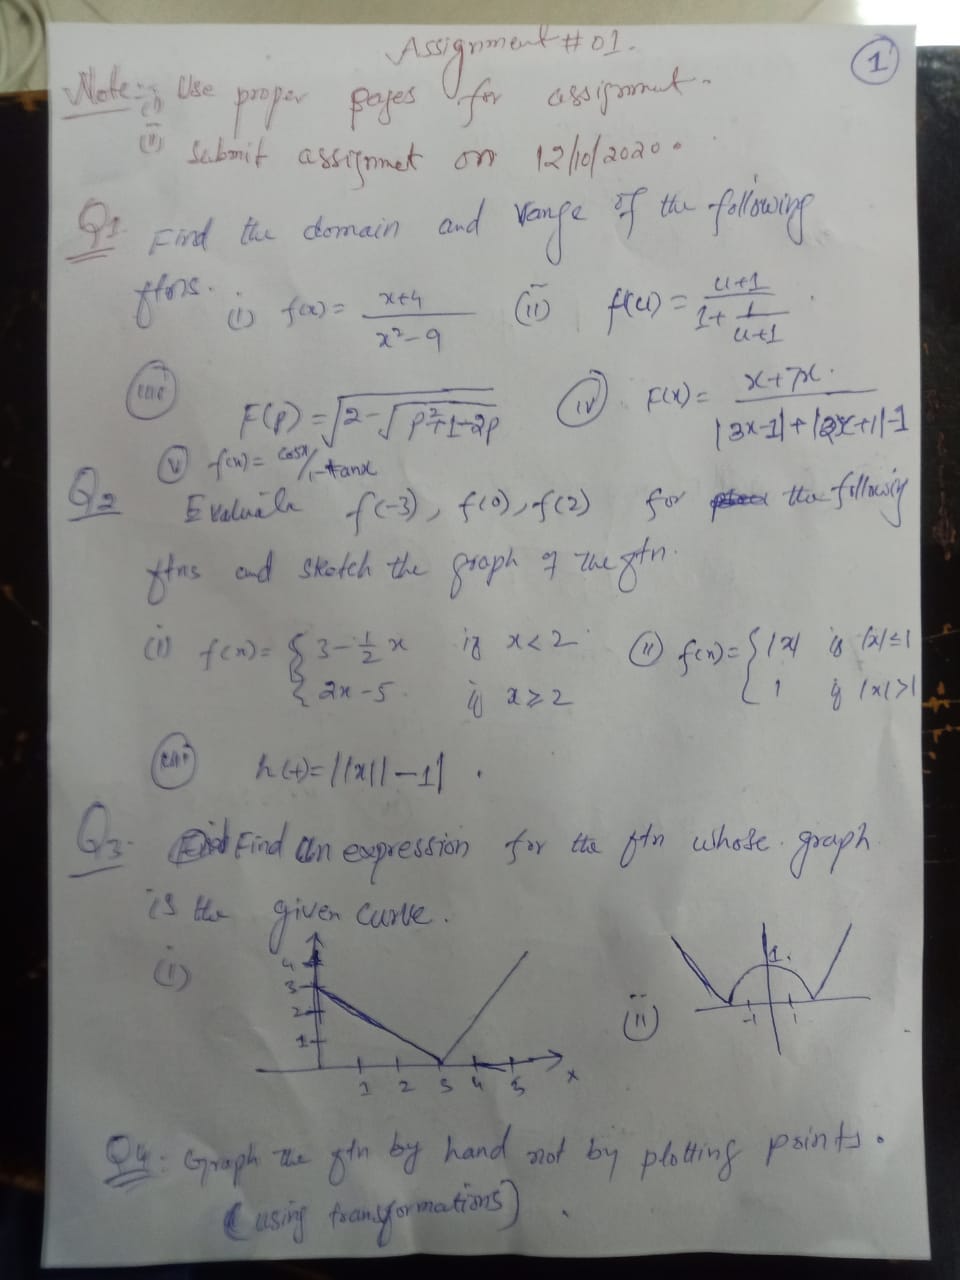 Assignment # 01.
1
Note:- (i) Use proper pages for assignment.
(ii) Submit assignmet on 12/10/2020.
Q1 Find the domain and range of the following
ftns. (i) f(x) = (x+4)/(x²-9) (ii) f(u) = (u+1)/(1+1/(u+1)).
(iii) F(p) = √(2-√(p²+1-2p)) (iv) F(x) = (x+7x)/(|3x-1|+|2x+1|-1)
(v) f(x) = cosx/1-tanx
Q2 Evaluate f(-3), f(0), f(2) for the following
ftns and sketch the graph of the ftn.
(i) f(x) = { 3-½x if x<2 (ii) f(x) = { |x| if |x|≤1
{ 2x-5. if x≥2 { 1 if |x|>1
(iii) h(t) = ||x||-1|.
Q3. Find an expression for the ftn whose graph
is the given curve.
(i) 4 3 2 1 1 2 3 4 5 x
(ii) 1. -1 1
Q4: Graph the ftn by hand not by plotting points.
(using transformations).